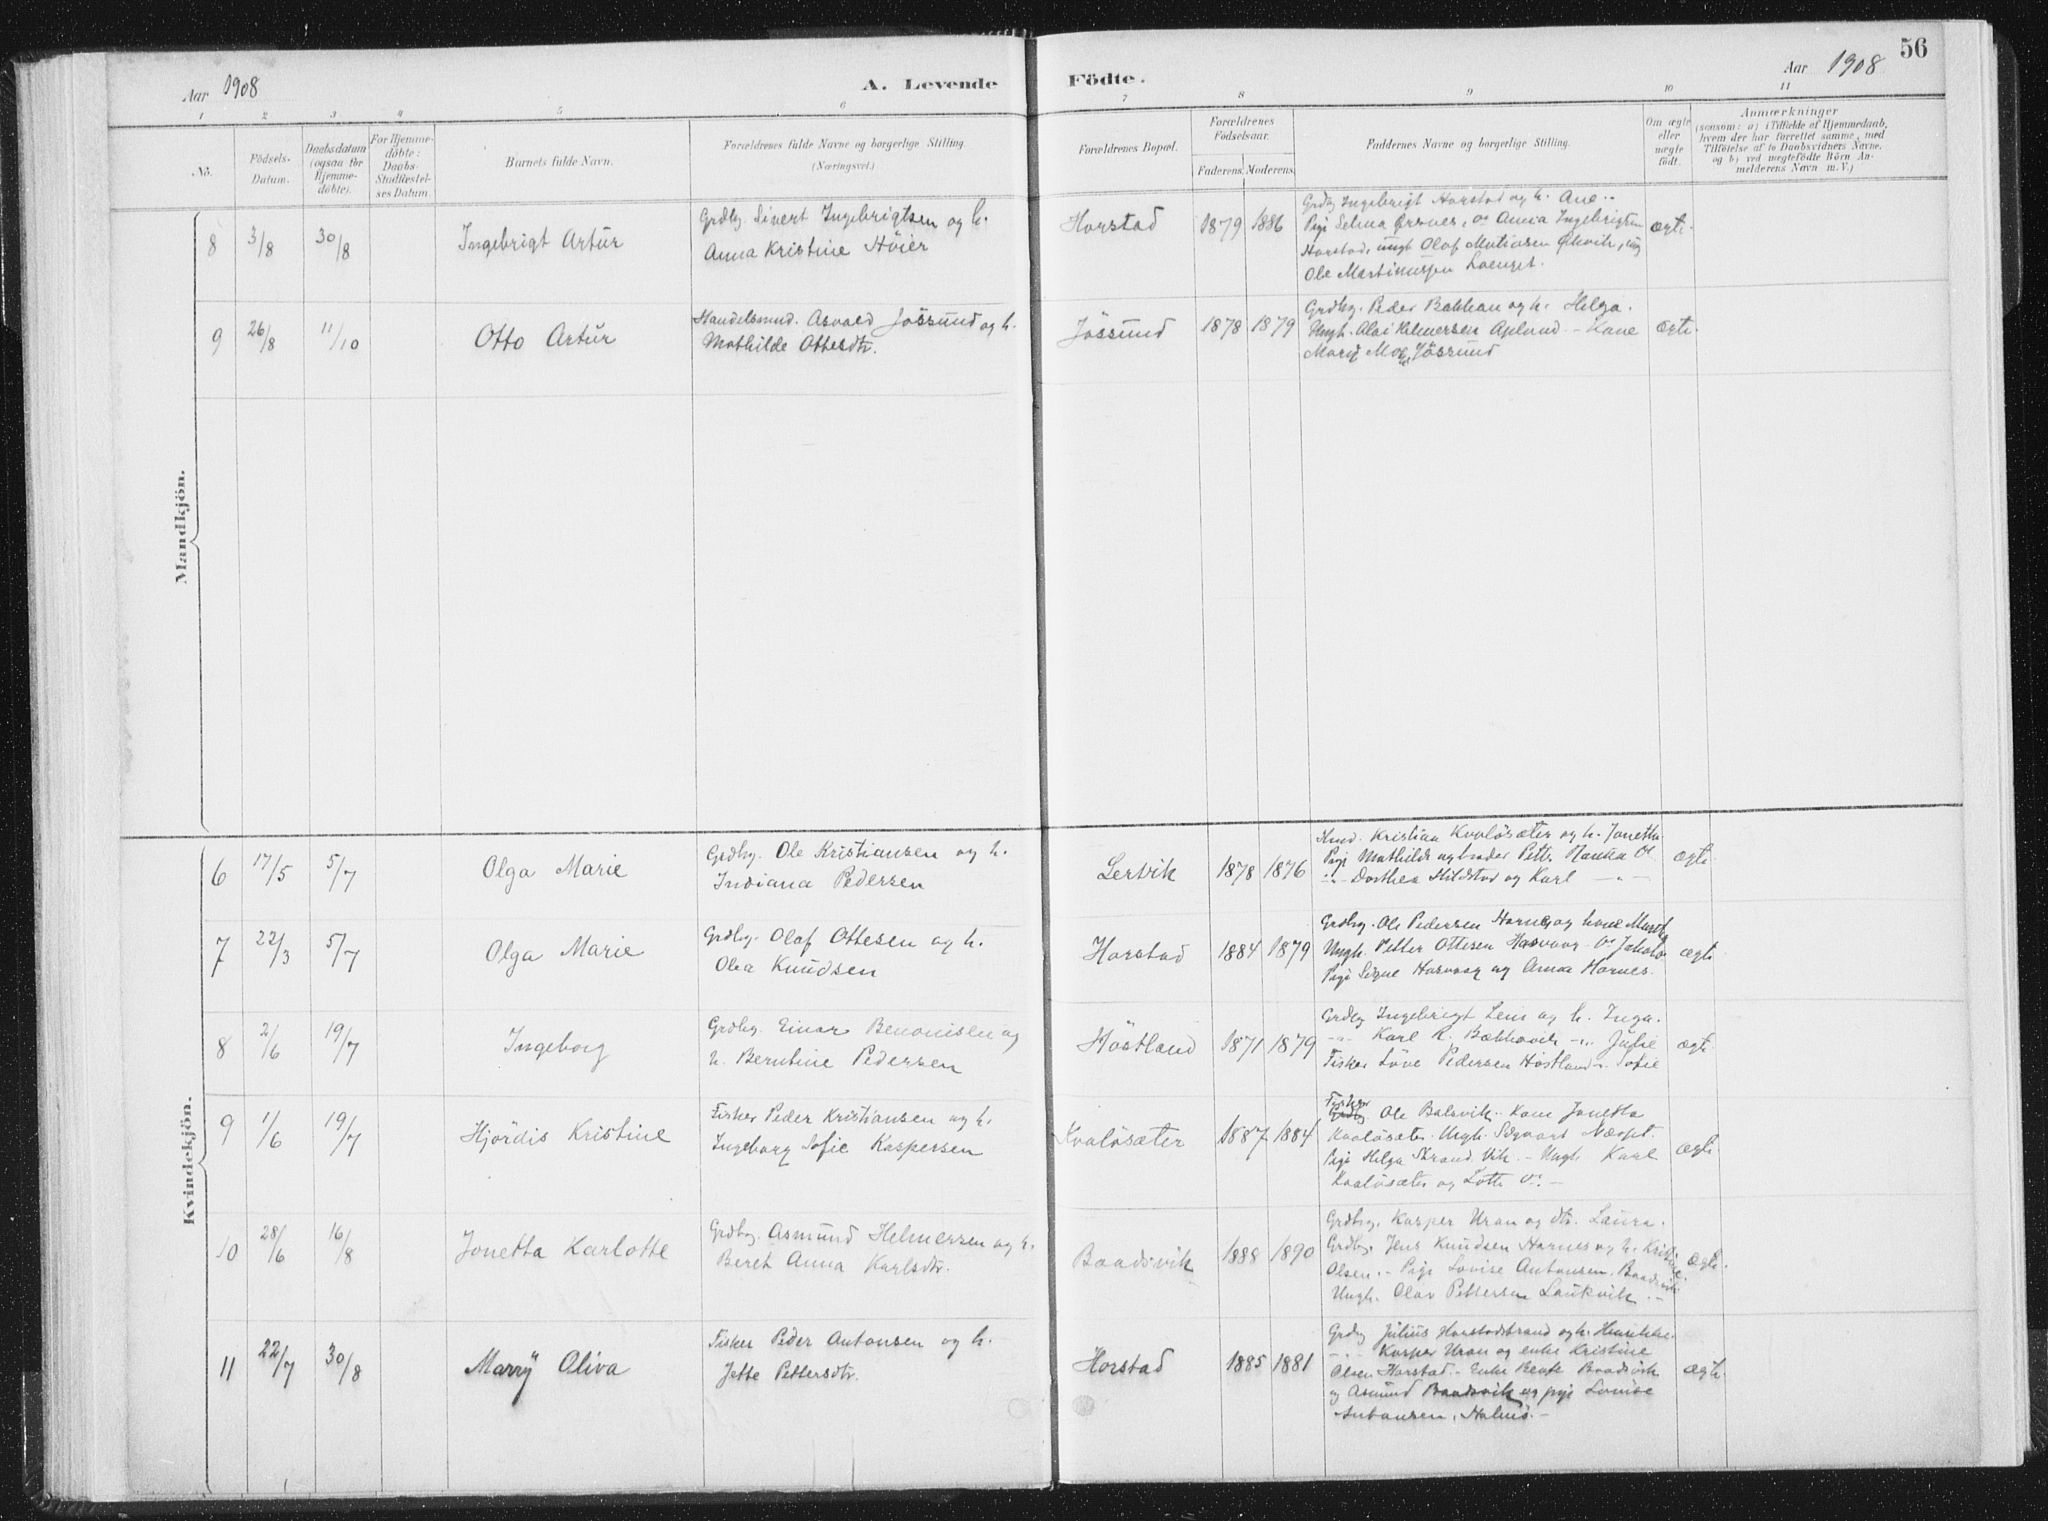 Aar 1908
A. Levende
Födte.
Aar 1908
56
1 2 3 4 5 6 7 8 9 10 11
No.
Födsels-
Datum.
Daabsdatum
(ogsaa for
Hjemme-
döbte).
For Hjemme-
döbte:
Daabs-
Stadfæstel-
ses Datum.
Barnets fulde Navn.
Forældrenes fulde Navne og borgerlige Stilling.
(Næringsvei.)
Forældrenes Bopæl.
Forældrenes
Födselsaar.
Faderens. Moderens.
Faddernes Navne og borgerlige Stilling.
Om ægte
eller
uægte
födt.
Anmærkninger
(saasom: a) i Tilfælde af Hjemmedaab,
hvem der har forrettet samme, med
Tilföielse af to Daabsvidners Navne,
og b) ved uægtefödte Börn An-
melderens Navn m. V.)
Mandkjön.
8 3/8 30/8 Ingebrigt Artur
Grdbg. Sivert Ingebrigtsen og h.
Anna Kristine Höier
Horstad 1879 1886
Grdbg Ingebrigt Horstad og h. Ane
Pige Selma Örsnes, Anna Ingebrigtsen
Horstad, ungk Olaf Matiasen
Ole Martinussen
ægte
9 26/8 11/10 Otto Artur
Handelsmnd. Asvald Jössund og h.
Mathilde Ottesdtr.
Jössund 1878 1879
Grdbg. Peder Bakkan og h. Helga.
Ungk. Olai Helmersen Aplund - Kone
Mary Jössund
ægte
Kvindekjön.
6 17/5 5/7 Olga Marie
Grdbg. Ole Kristiansen og h.
Indiana Pedersen
Lervik 1878 1876
Kristian Kvalösæter og h. Jonetta.
Pige Mathilde og broder Petter
Dorthea Hildstad og Karl
ægte
7 22/3 5/7 Olga Marie
Grdbg. Olaf Ottesen og h.
Olea Knudsen
Horstad 1884 1879
Grdbg. Ole Pedersen Harnes og kone
Ungk. Petter Ottesen Hasvaag
Pige Signe Hasvaag og Anna Harnes.
ægte
8 2/6 19/7 Ingeborg
Grdbg. Einar Benonisen og
h. Berntine Pedersen
Höstland 1871 1879
Grdbg Ingebrigt Lein og h. Inga.
Karl R. Julie
Fisker Löve Pedersen Höstland Sofie
ægte
9 1/6 19/7 Hjördis Kristine
Fisker Peder Kristiansen og h.
Ingeborg Sofie Kaspersen
Kvalösæter 1887 1884
Fisker
Ole Balsvik. Kone Jonetta
Kvalösæter. Ungk. Sigvart
Pige Helga Strand Vik. - Ungk Karl
Kvalösæter og Lotte
ægte
10 28/6 16/8 Jonetta Karlotte
Grdbg. Asmund Helmersen og h.
Beret Anna Karlsdtr.
Baadsvik 1888 1890
Grdbg. Kasper Uran og dtr. Laura.
Grdbg. Jens Knudsen Harnes og h. Kristine
Olsen. - Pige Lovise Antonsen, Baadsvik
Ungk. Olav Pettersen Laukvik.
ægte
11 22/7 30/8 Marrÿ Oliva
Fisker Peder Antonsen og h.
Jette Pettersdtr.
Horstad 1885 1881
Grdbg Julius Horstadstrand og h. Henrikke.
Kasper Uran og enke Kristine
Olsen Horstad. Enke Baadsvik
og Asmund Baadsvik og pige Lovise
Antonsen,
ægte